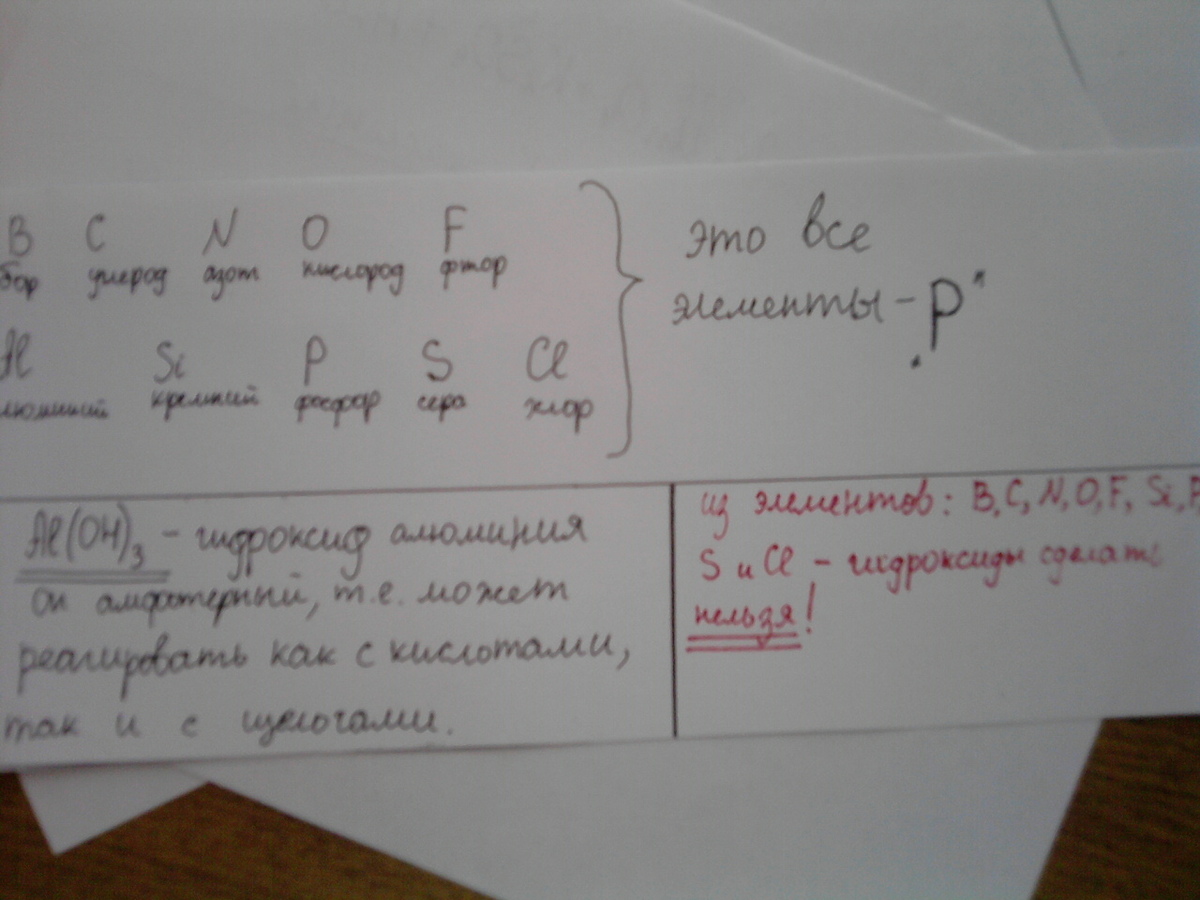 B C N O F
бор углерод азот кислород фтор
Al Si P S Cl
люминий кремний фосфор сера хлор
это все
элементы - p"
Al(OH)3 - гидроксид алюминия
он амфотерный, т.е. может
реагировать как с кислотами,
так и с щелочами.
из элементов: B, C, N, O, F, Si, P,
S и Cl - гидроксиды сделать
нельзя!